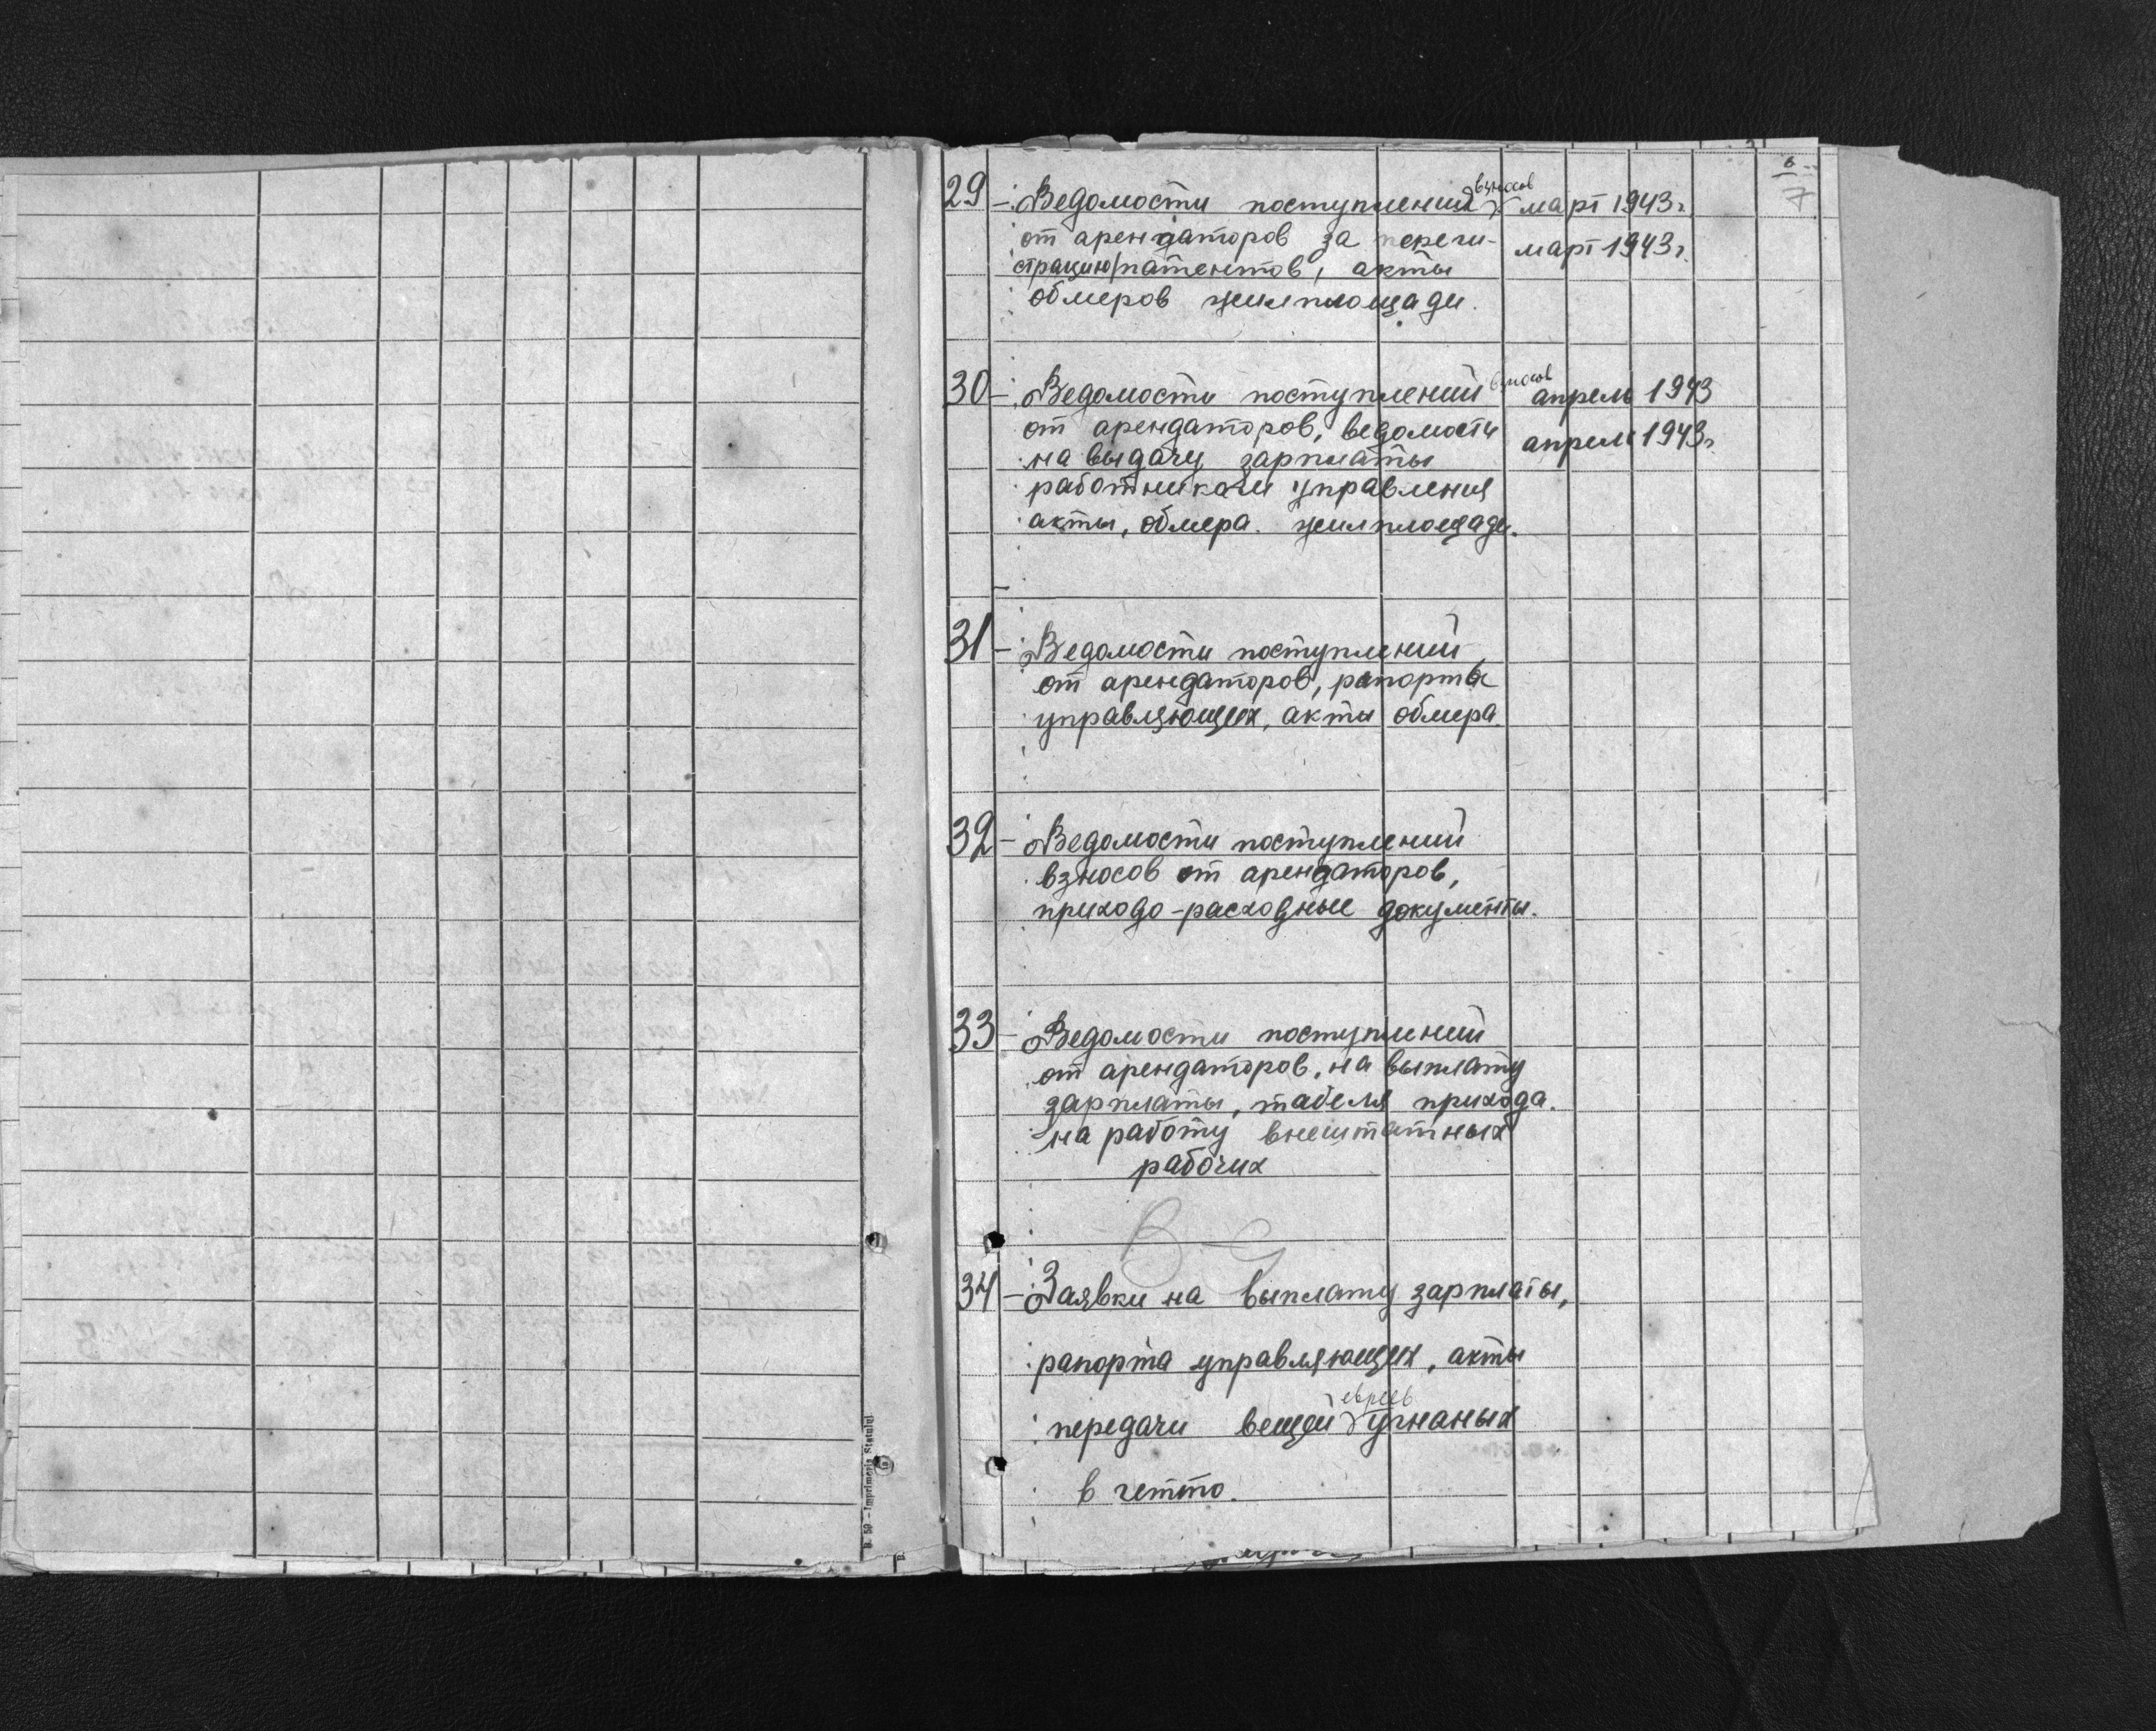 6
7
29 - Ведомости поступления взносов март 1943г.
от арендаторов за переги- март 1943г.
страцию патентов, акты
обмеров жилплощади.
30 - Ведомости поступлений взносов апрель 1943
от арендаторов, ведомости апрель 1943г.
на выдачу зарплаты
работникам управления
акты, обмера. жилплощади.
31 - Ведомости поступлений
от арендаторов, рапорта
управляющих, акты обмера.
32 - Ведомости поступлений
взносов от арендаторов,
приходо-расходные документы.
33 - Ведомости поступлений
от арендаторов, на выплату
зарплаты, табеля прихода.
на работу внештатных
рабочих
34 - Заявки на выплату зарплаты,
рапорта управляющих, акты
передачи вещей евреев угнаных
в гетто.
B. 59 - Imprimeria Statului